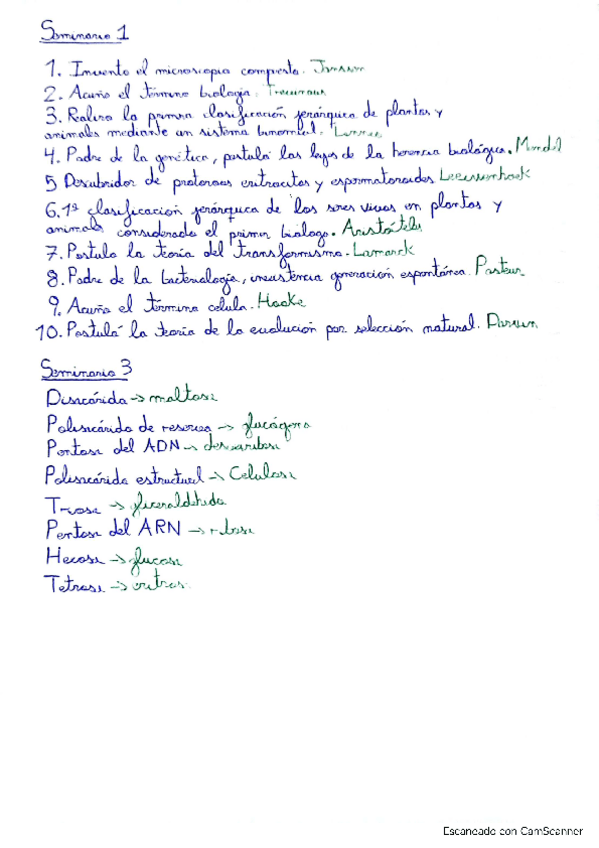 Seminario 1
1. Invento el microscopio compuesto. Janssen
2. Acuño el término biología. Treviranus
3. Realizo la primera clasificación jerárquica de plantas y
animales mediante un sistema binomial. Linneo
4. Padre de la genética, postula las leyes de la herencia biológica. Mendel
5 Descubridor de protozoos eritrocitos y espermatozoides Leeuwenhoek
6. 1ª clasificación jerárquica de los seres vivos en plantas y
animales considerado el primer biologo. Aristóteles
7. Postulo la teoría del transformismo. Lamarck
8. Padre de la bacteriología, inexistencia generación espontánea. Pasteur
9. Acuño el término celula. Hooke
10. Postuló la teoría de la evolución por selección natural. Darwin
Seminario 3
Disacárido -> maltosa
Polisacárido de reserva -> glucógeno
Pentosa del ADN -> desoxirribosa
Polisacárido estructural -> Celulosa
Triosa -> gliceraldehido
Pentosa del ARN -> ribosa
Hexosa -> glucosa
Tetrosa -> eritrosa
Escaneado con CamScanner